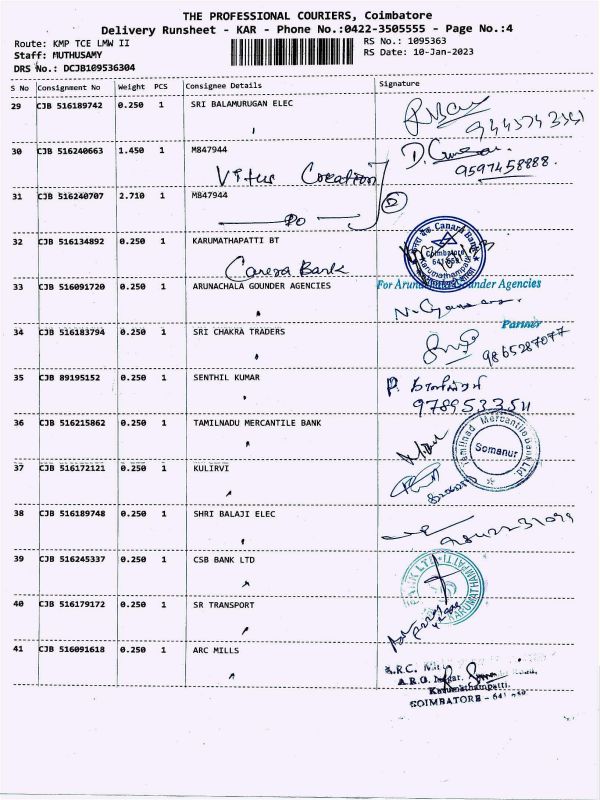 THE PROFESSIONAL COURIERS, Coimbatore
Delivery Runsheet - KAR - Phone No.:0422-3505555 - Page No.:4
Route: KMP TCE LMW II
RS No.: 1095363
Staff: MUTHUSAMY
RS Date: 10-Jan-2023
DRS No.: DCJB109536304
S No Consignment No Weight PCS Consignee Details Signature
29 CJB 516189742 0.250 1 SRI BALAMURUGAN ELEC
30 CJB 516240663 1.450 1 M847944
D.
9597458888.
Vitus Creation
31 CJB 516240707 2.710 1 M847944
Do
32 CJB 516134892 0.250 1 KARUMATHAPATTI BT
Canara Bank
Coimbatore
Karumathampatti
Canera Bank
33 CJB 516091720 0.250 1 ARUNACHALA GOUNDER AGENCIES
For Arunachala Gounder Agencies
Partner
34 CJB 516183794 0.250 1 SRI CHAKRA TRADERS
9865287077
35 CJB 89195152 0.250 1 SENTHIL KUMAR
P.
9789533511
36 CJB 516215862 0.250 1 TAMILNADU MERCANTILE BANK
Tamilnad Mercantile Bank Ltd.
Somanur
37 CJB 516172121 0.250 1 KULIRVI
38 CJB 516189748 0.250 1 SHRI BALAJI ELEC
39 CJB 516245337 0.250 1 CSB BANK LTD
BANK LTD
KARUMATHAMPATTI
40 CJB 516179172 0.250 1 SR TRANSPORT
41 CJB 516091618 0.250 1 ARC MILLS
A.R.C.
Karumathampatti.
COIMBATORE - 641